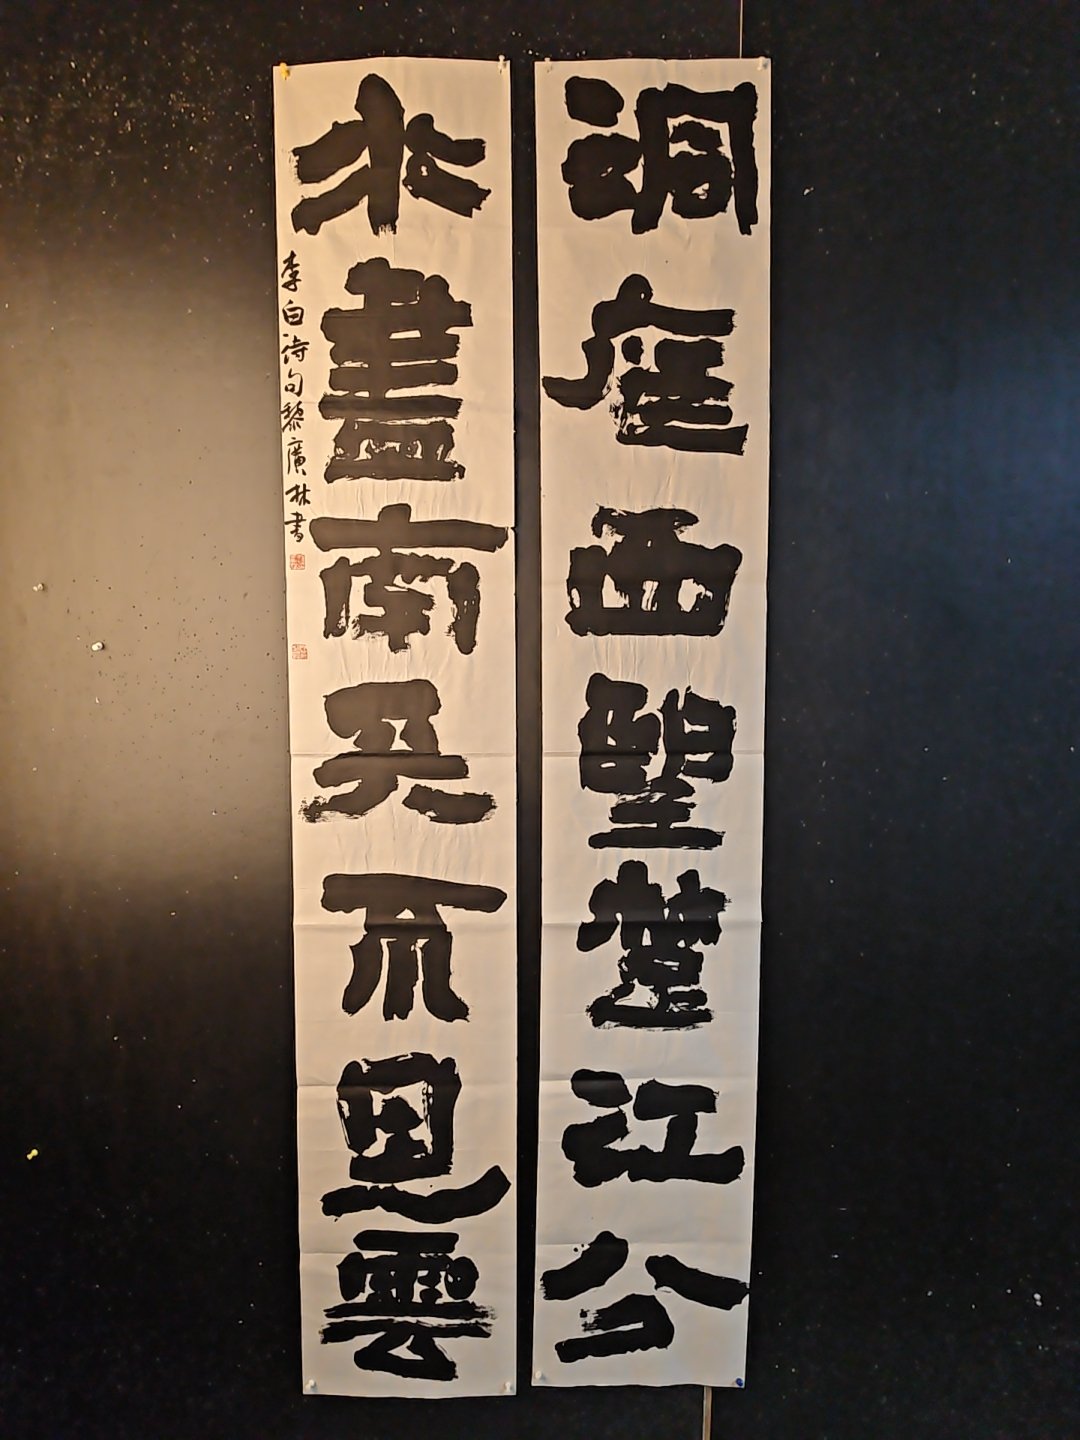 洞庭西望楚江分
水盡南天不見雲
李白诗句黎廣林書